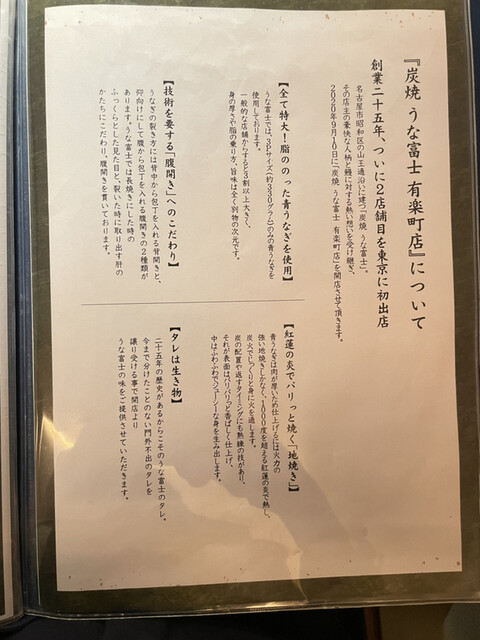 『炭焼 うな富士 有楽町店』について
創業二十五年、ついに2店舗目を東京に初出店
名古屋市昭和区の山王通沿いに建つ「炭焼 うな富士」。
その店主の豪快な人柄と鰻に対する熱い想いを受け継ぎ、
2020年9月10日に「炭焼 うな富士 有楽町店」を開店させて頂きます。
【全て特大！脂ののった青うなぎを使用】
うな富士では、3Pサイズ（約330グラム）のみの青うなぎを
使用しております。
一般的な店舗からすると3割以上大きく、
身の厚さや脂の乗り方、旨味は全く別物の次元です。
【技術を要する「腹開き」へのこだわり】
うなぎの裂き方には背中から包丁を入れる背開きと、
仰向けにして腹から包丁を入れる腹開きの2種類が
あります。うな富士では長焼きにした時の
ふっくらとした見た目と、裂いた時に取り出す肝の
かたちにこだわり、腹開きを貫いております。
【紅蓮の炎でパリっと焼く「地焼き」】
青うなぎは肉が厚いため仕上げるには火力の
強い地焼きしかなく、1000度を超える紅蓮の炎で熱し、
炭火でじっくりと身に火を通します。
炭の配置や返すタイミングにも熟練の技があり、
それが表面はパリパリっと香ばしく仕上げ、
中はふわふわでジューシーな身を生み出します。
【タレは生き物】
二十五年の歴史があるからこそのうな富士のタレ。
今まで分けたことのない門外不出のタレを
譲り受ける事で開店より
うな富士の味をご提供させていただきます。